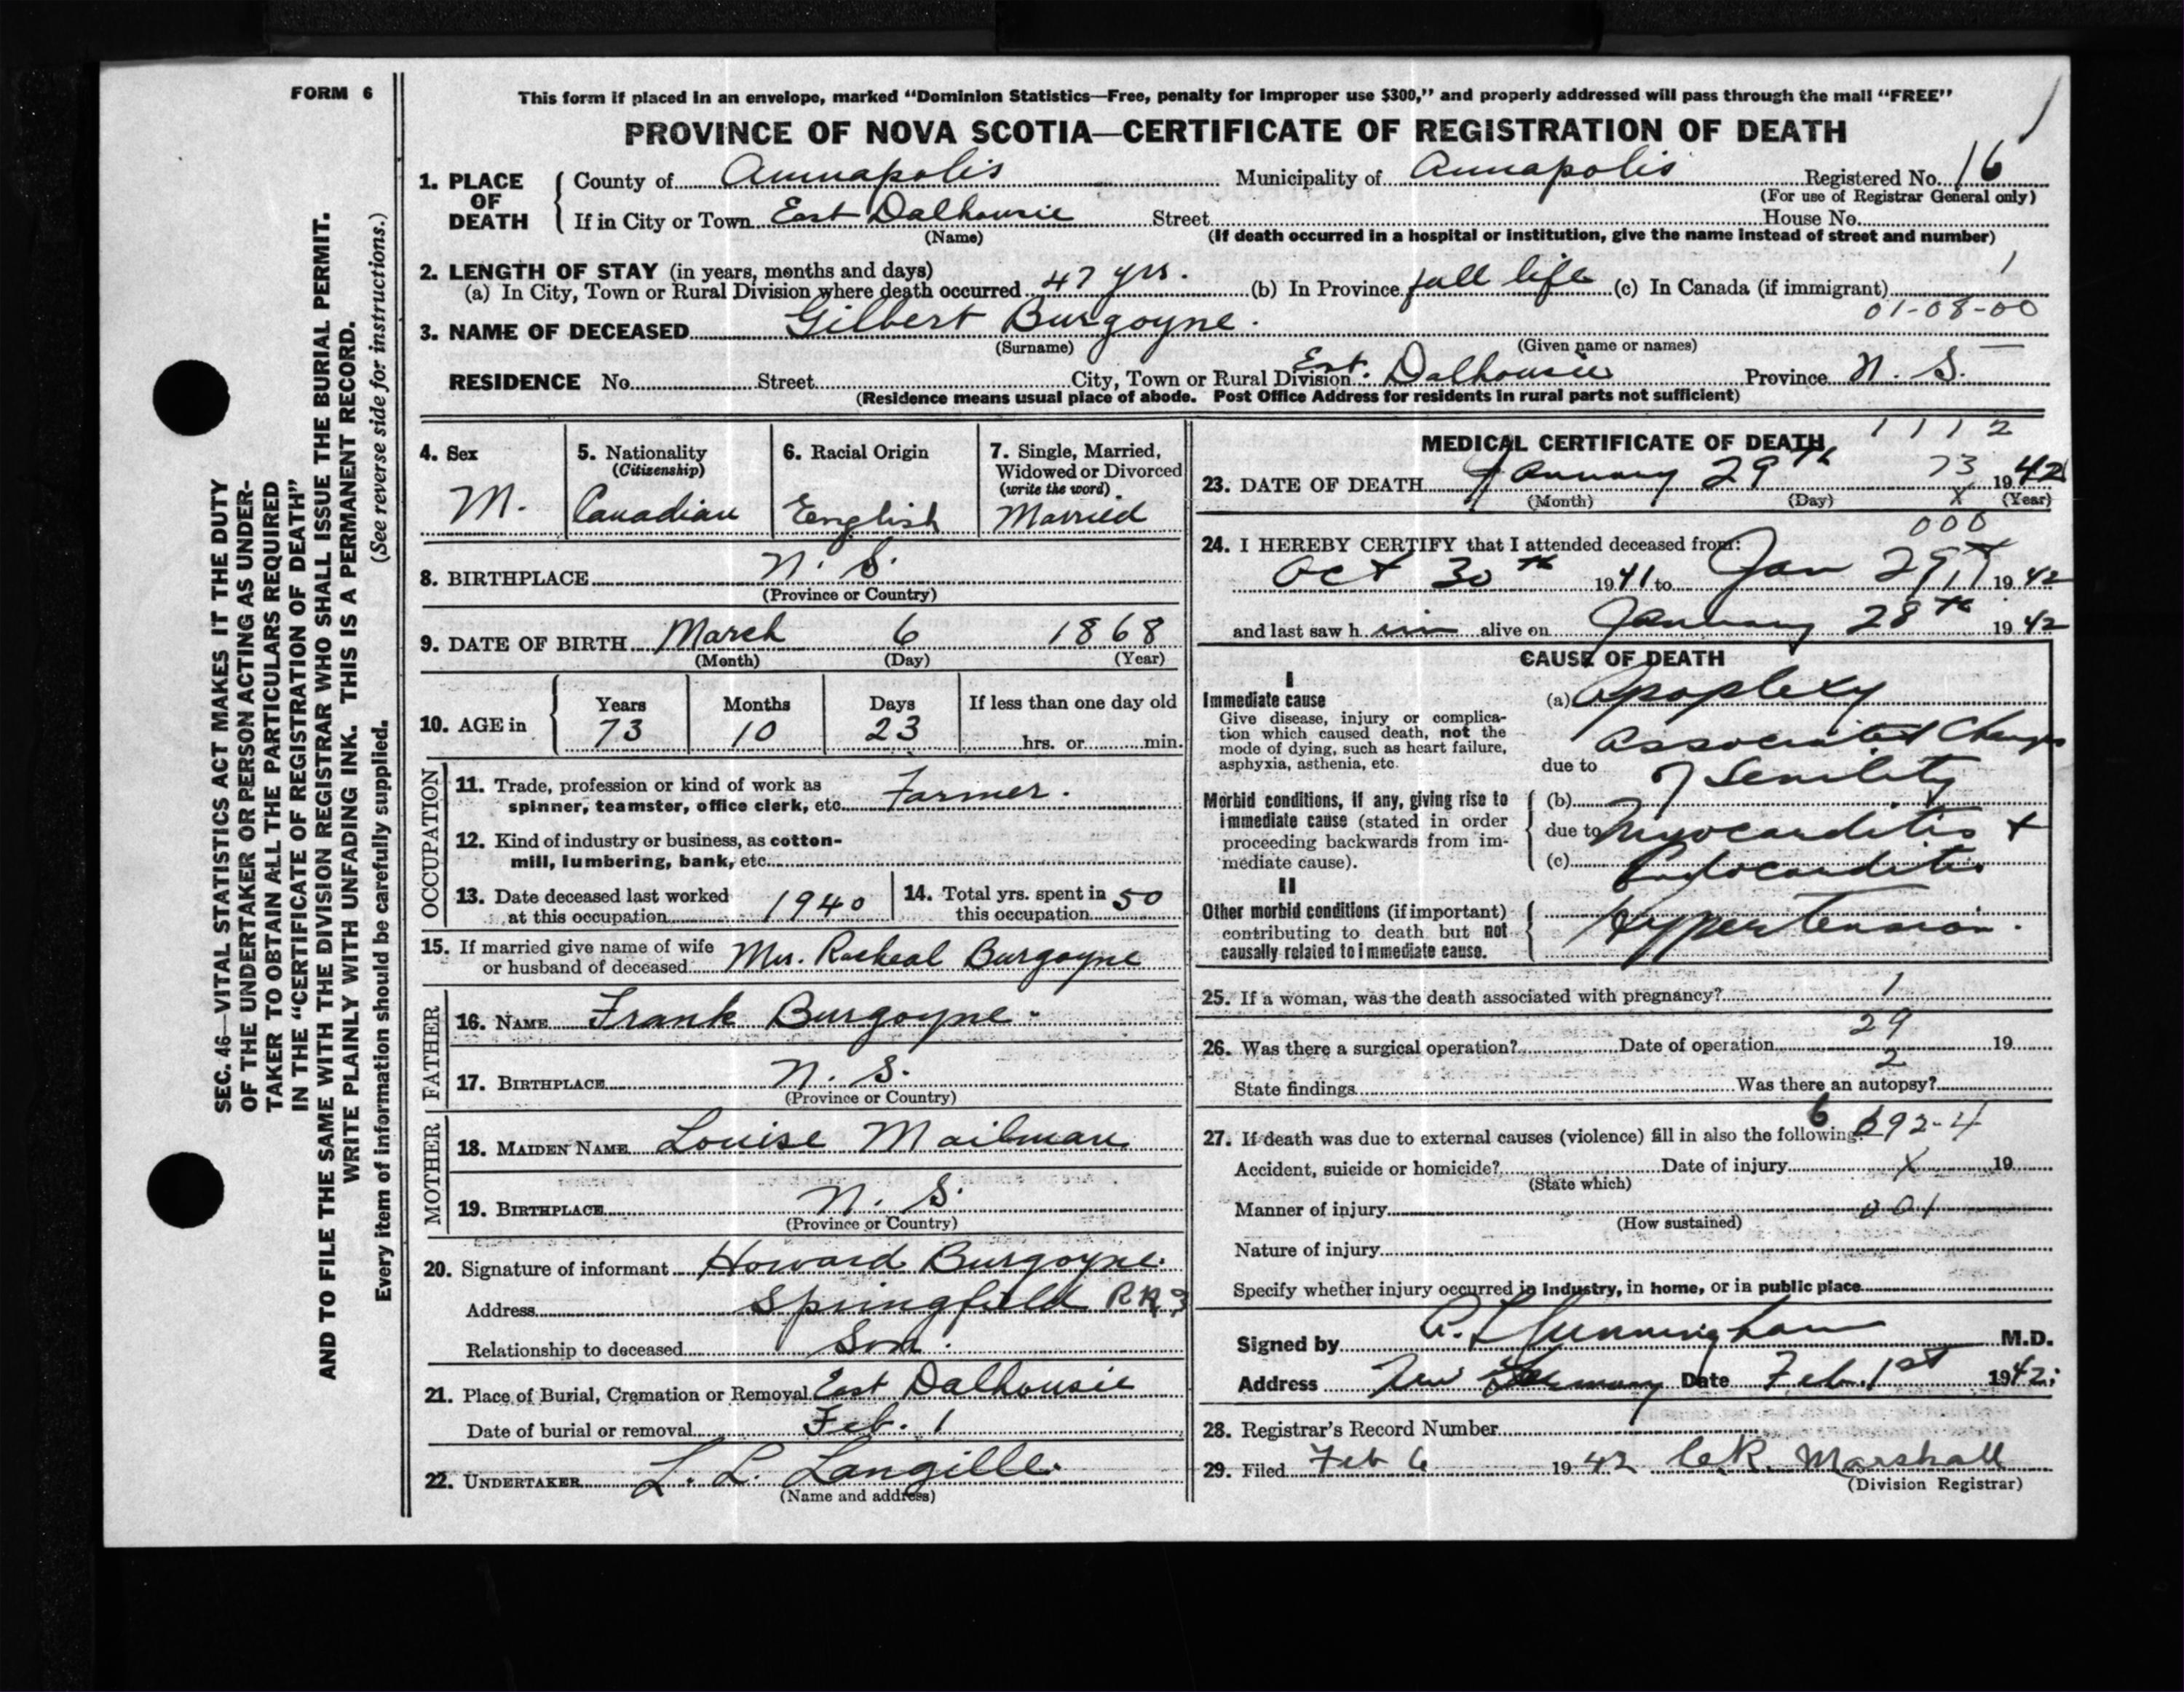 FORM 6
This form if placed in an envelope, marked "Dominion Statistics—Free, penalty for improper use $300," and properly addressed will pass through the mail "FREE"
PROVINCE OF NOVA SCOTIA—CERTIFICATE OF REGISTRATION OF DEATH
1. PLACE OF DEATH County of Annapolis Municipality of Annapolis Registered No. 16
(For use of Registrar General only)
If in City or Town East Dalhousie Street House No.
(Name) (If death occurred in a hospital or institution, give the name instead of street and number)
2. LENGTH OF STAY (in years, months and days)
(a) In City, Town or Rural Division where death occurred 47 yrs. (b) In Province full life (c) In Canada (if immigrant) 1
01-08-00
3. NAME OF DECEASED Gilbert Burgoyne.
(Surname) (Given name or names)
RESIDENCE No. Street City, Town or Rural Division East Dalhousie Province N. S.
(Residence means usual place of abode. Post Office Address for residents in rural parts not sufficient)
4. Sex 5. Nationality 6. Racial Origin 7. Single, Married,
(Citizenship) Widowed or Divorced
(write the word)
M. Canadian English Married
8. BIRTHPLACE N. S.
(Province or Country)
9. DATE OF BIRTH March 6 1868
(Month) (Day) (Year)
10. AGE in Years Months Days If less than one day old
73 10 23 hrs. or min.
OCCUPATION
11. Trade, profession or kind of work as
spinner, teamster, office clerk, etc. Farmer.
12. Kind of industry or business, as cotton-
mill, lumbering, bank, etc.
13. Date deceased last worked
at this occupation 1940
14. Total yrs. spent in
this occupation 50
15. If married give name of wife
or husband of deceased Mrs. Racheal Burgoyne
FATHER
16. NAME Frank Burgoyne
17. BIRTHPLACE N. S.
(Province or Country)
MOTHER
18. MAIDEN NAME Louise Mailman
19. BIRTHPLACE N. S.
(Province or Country)
20. Signature of informant Howard Burgoyne
Address Springfield RR 3
Relationship to deceased Son.
21. Place of Burial, Cremation or Removal East Dalhousie
Date of burial or removal Feb. 1
22. UNDERTAKER L. L. Langille
(Name and address)
MEDICAL CERTIFICATE OF DEATH 1112
23. DATE OF DEATH January 29th 73 1942
(Month) (Day) X (Year)
000
24. I HEREBY CERTIFY that I attended deceased from:
Oct 30th 1941 to Jan 29th 1942
and last saw h im alive on January 28th 1942
CAUSE OF DEATH
I
Immediate cause
Give disease, injury or complica-
tion which caused death, not the
mode of dying, such as heart failure,
asphyxia, asthenia, etc.
(a) Apoplexy
Associated Changes
due to of Senility
Morbid conditions, if any, giving rise to
immediate cause (stated in order
proceeding backwards from im-
mediate cause).
(b)
due to Myocarditis +
(c) Endocarditis
II
Other morbid conditions (if important)
contributing to death but not
causally related to immediate cause.
Hypertension.
25. If a woman, was the death associated with pregnancy? 1
29
26. Was there a surgical operation? Date of operation 19
2
State findings Was there an autopsy?
27. If death was due to external causes (violence) fill in also the following: 6 692-4
Accident, suicide or homicide? Date of injury X 19
(State which)
Manner of injury 001
(How sustained)
Nature of injury
Specify whether injury occurred in industry, in home, or in public place
Signed by Cunningham M.D.
Address New Germany Date Feb. 1st 1942
28. Registrar's Record Number
29. Filed Feb 6 1942 C.R. Marshall
(Division Registrar)
SEC. 46—VITAL STATISTICS ACT MAKES IT THE DUTY
OF THE UNDERTAKER OR PERSON ACTING AS UNDER-
TAKER TO OBTAIN ALL THE PARTICULARS REQUIRED
IN THE "CERTIFICATE OF REGISTRATION OF DEATH"
AND TO FILE THE SAME WITH THE DIVISION REGISTRAR WHO SHALL ISSUE THE BURIAL PERMIT.
WRITE PLAINLY WITH UNFADING INK. THIS IS A PERMANENT RECORD.
Every item of information should be carefully supplied. (See reverse side for instructions.)